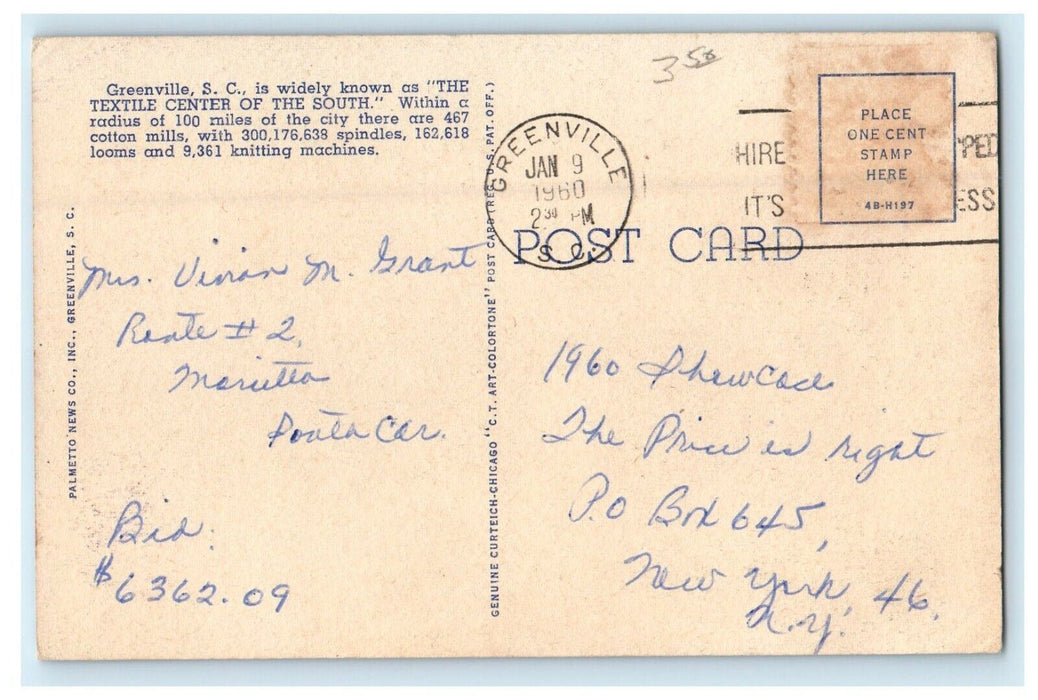 Greenville, S. C., is widely known as "THE
TEXTILE CENTER OF THE SOUTH." Within a
radius of 100 miles of the city there are 467
cotton mills, with 300,176,638 spindles, 162,618
looms and 9,361 knitting machines.
PALMETTO NEWS CO., INC., GREENVILLE, S. C.
Mrs. Vivian M. Grant
Route # 2,
Marietta
South Car.
Bid.
$6362.09
GENUINE CURTEICH-CHICAGO "C.T. ART-COLORTONE" POST CARD (REG. U.S. PAT. OFF.)
350
GREENVILLE
JAN 9
1960
2 30 PM
S. C.
HIRE
PPED
IT'S
ESS
PLACE
ONE CENT
STAMP
HERE
4B-H197
POST CARD
1960 Showcase
The Price is right
P.O Box 645,
New York 46,
N.Y.